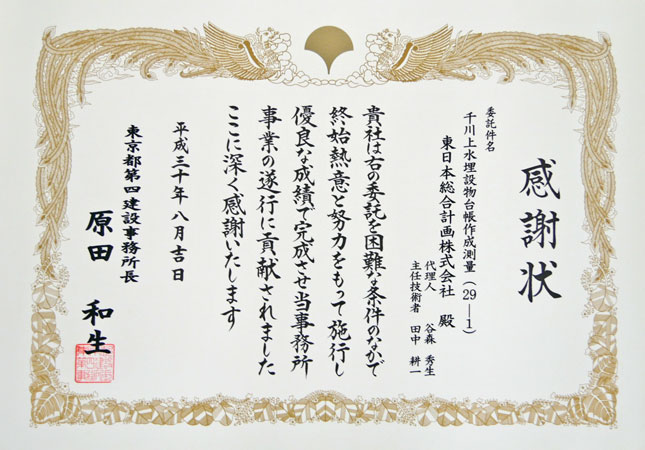 感謝状
委託件名
千川上水埋設物台帳作成測量(29―1)
東日本総合計画株式会社 殿
代理人 谷森 秀生
主任技術者 田中 耕一
貴社は右の委託を困難な条件のなかで
終始熱意と努力をもって施行し
優良な成績で完成させ当事務所
事業の遂行に貢献されました
ここに深く感謝いたします
平成三十年八月吉日
東京都第四建設事務所長
原田 和生